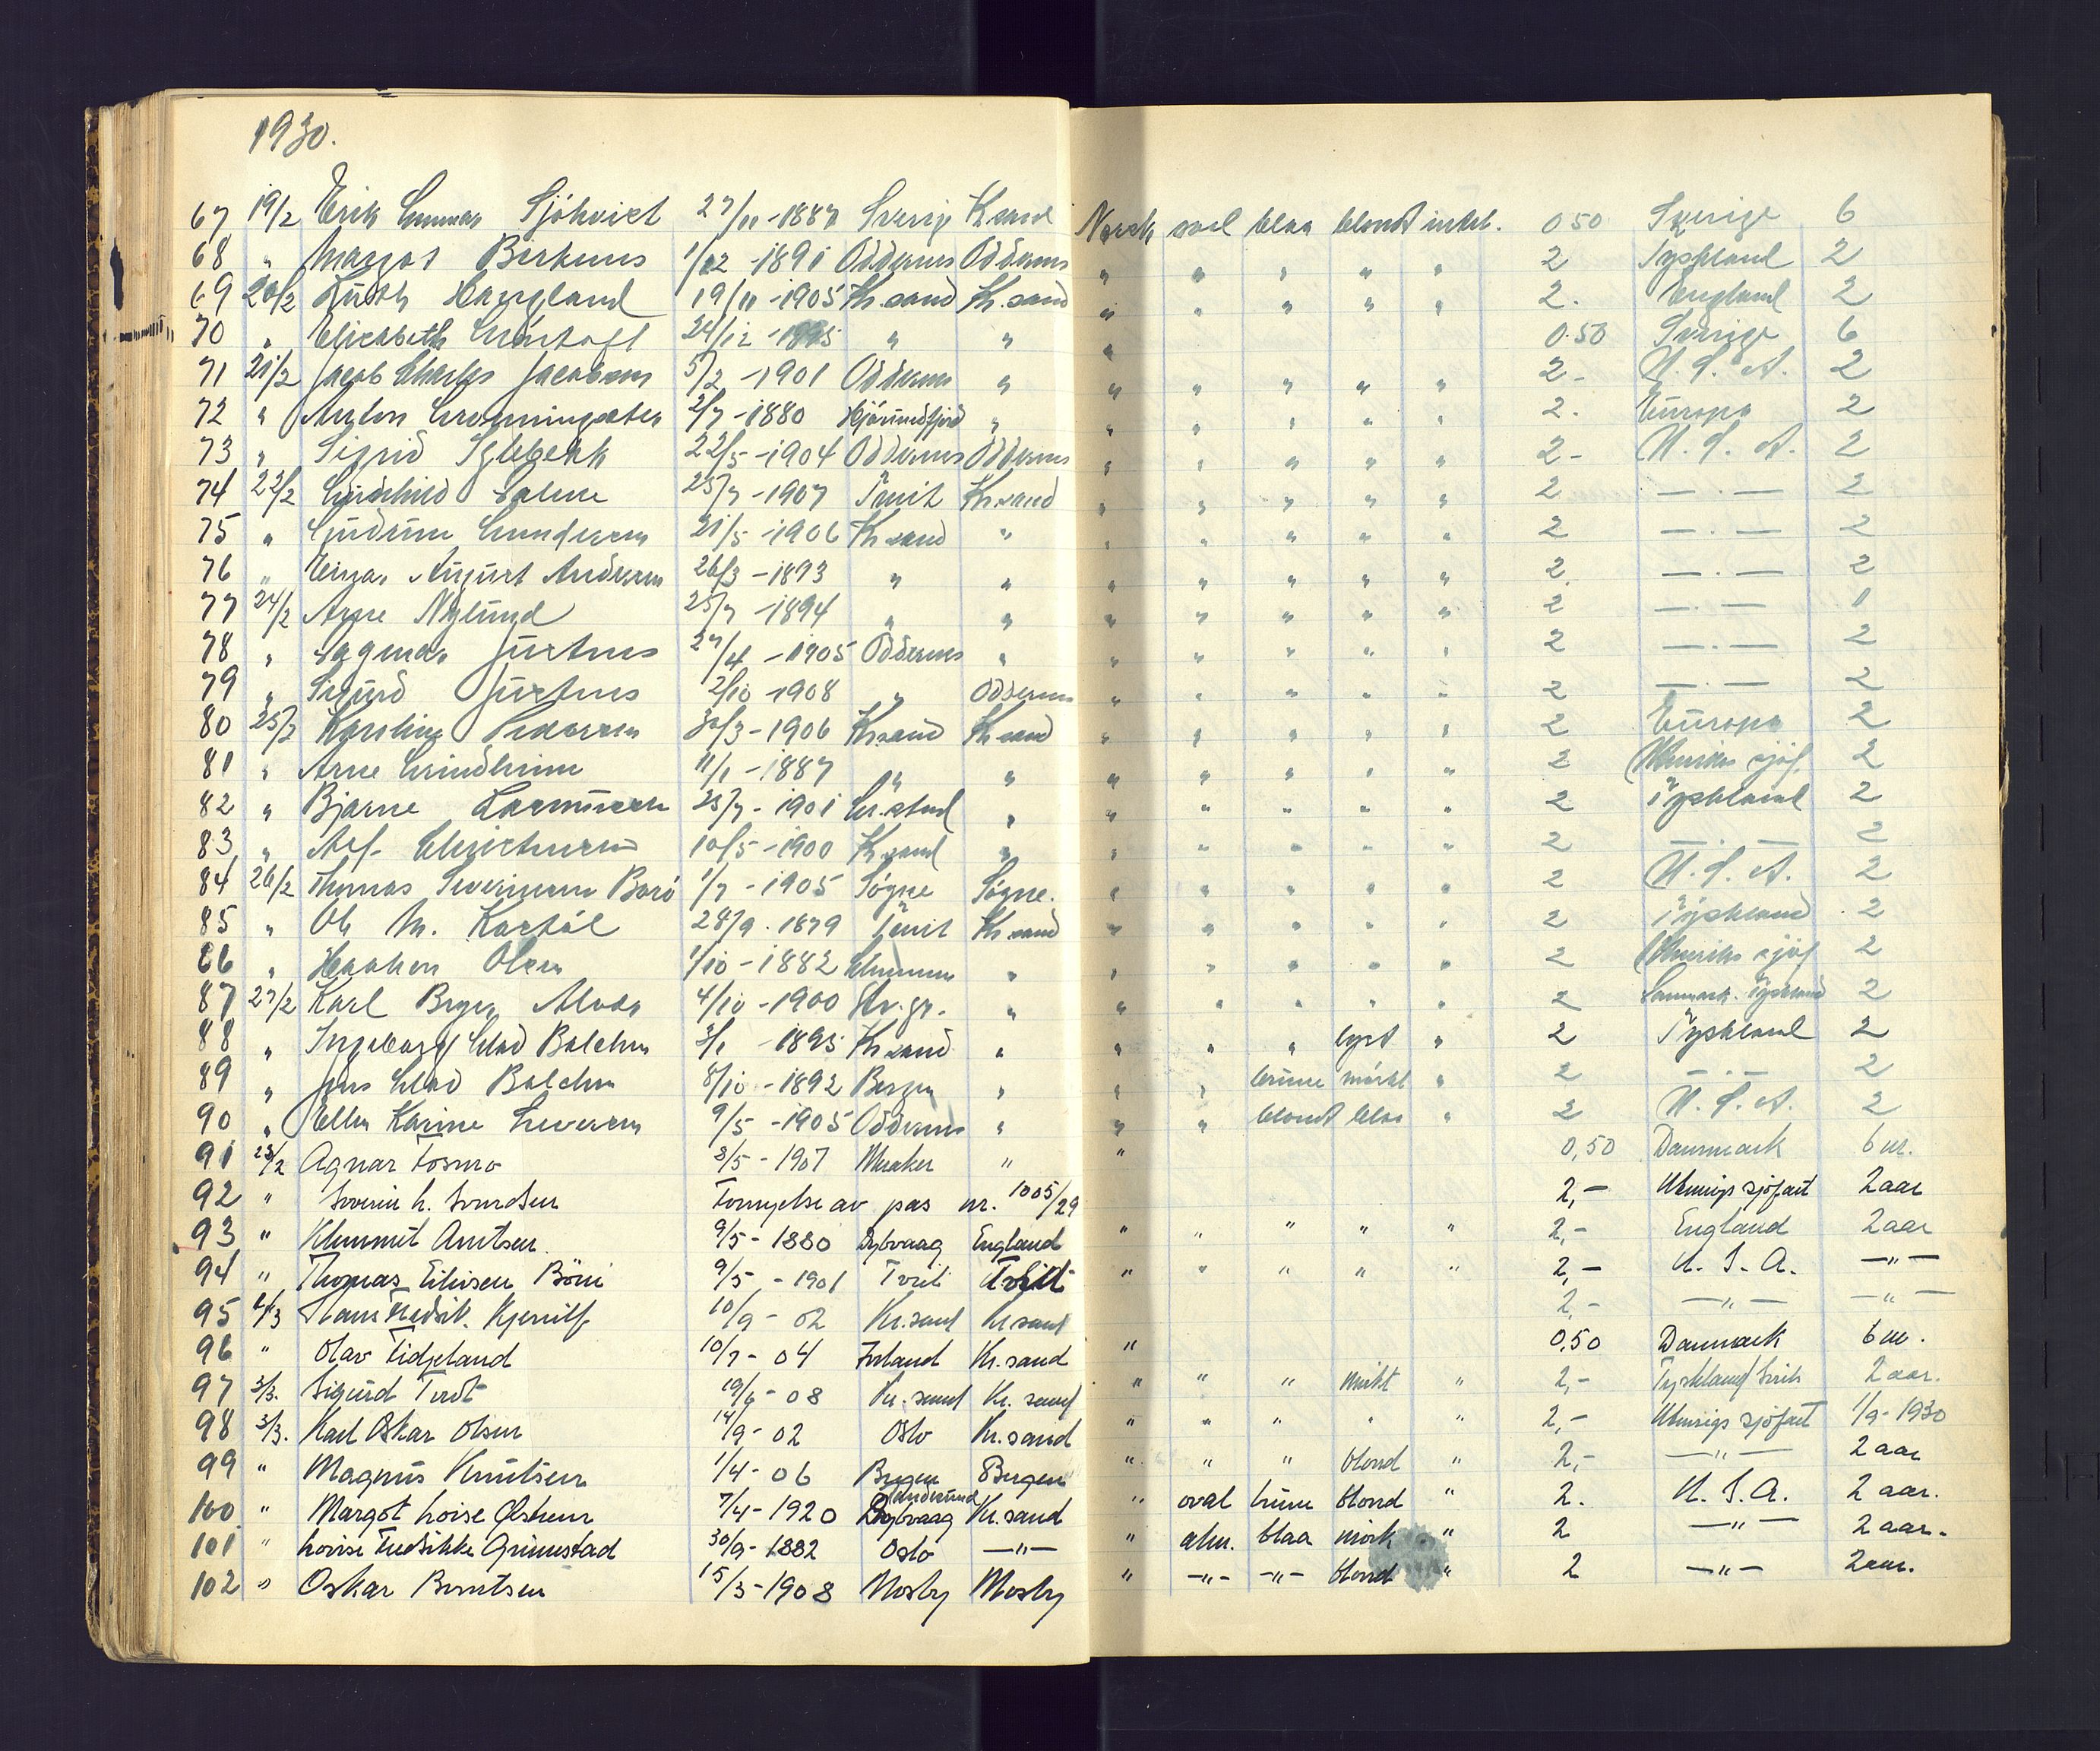 1930.
67 19/2 Erik Gunnar Sjökvist 27/11-1887 Sverige Kr.sand Norsk oval blaa blondt intet. 0 50 Sverige 6
68 " Margot Birkenes 1/12 -1891 Oddernes Oddernes " " " " " 2 Tyskland 2
69 20/2 Ruth Haugland 19/11-1905 Kr.sand Kr.sand " " " " " 2. England 2
70 " Elisabeth 24/12 - " " " 0.50 Sverige 6
71 21/2 Jacob Charles Jacobsen 5/2 -1901 Oddernes " " " " " " 2- U.S.A. 2
72 " Anton 2/7-1880 Hjörundfjord " " " " " " 2. Europa 2
73 " Sigrid 22/5-1904 Oddernes Oddernes " " " " " 2- U.S.A. 2
74 22/2 25/7-1907 Tveit Kr.sand " " " " " 2 —.— 2
75 " Gudrun Gundersen 21/5-1906 Kr.sand " " " " " " 2 —.— 2
76 " Einar August Andersen 26/3-1893 " " " " " " " 2 —.— 2
77 24/2 Arne Nylund 25/7-1894 " " " " " " " 2 —.— 1
78 " Dagmar Justnes 27/4-1905 Oddernes " " " " " " 2 —.— 2
79 " Sigurd Justnes 2/10-1908 " Oddernes " " " " " 2 —.— 2
80 25/2 Karoline Pedersen 30/3-1906 Kr.sand Kr.sand " " " " " 2 Europa 2
81 " Arne Grindheim 11/1-1887 " " " " " " " 2 Utenriks sjöf. 2
82 " Bjarne Rasmussen 25/7-1901 Gr.stad " " " " " " 2 Tyskland 2
83 " Alf Christensen 10/5-1900 Kr.sand " " " " " " 2 —.— 2
84 26/2 Thomas Severinsen Borö 1/7-1905 Sögne Sögne. " " " " " 2 U.S.A. 2
85 " Ole M. 28/9.1879 Tveit Kr.sand " " " " " 2 Tyskland 2
86 " Haakon Olsen 1/10-1882 " " " " " " 2 Utenriks sjöf 2
87 27/2 Karl Birger 4/10-1900 " " " " " " 2 Danmark. Tyskland 2
88 " Ingeborg Glad Balchen 3/1-1895 Kr.sand " " " " lyst " 2 Tyskland 2
89 " Jens Glad Balchen 8/10-1892 Bergen " " " brune mörkt " 2 —.— 2
90 " Ellen Karine Syversen 9/5-1905 Oddernes " " " blondt blaa " 2 U.S.A. 2
91 28/2 Agnar Fosmo 8/5-1907 Meraker " " 0,50 Danmark 6 m.
92 " Severin G. Svendsen Fornyelse av pas nr. 1005/29 2,- Utenrigs sjöfart 2 aar
93 " Klemmet Arntsen. 9/5-1880 Dybvaag England " " " " " 2,- England 2 aar
94 " Thomas Eilivsen Böni 9/5-1901 Tveit Tveit " " " " " 2,- U.S.A. —"—
95 1/3 Hans Fredrik. Kjerulf 10/9-02 Kr.sand Kr.sand 2,- —"— —"—
96 " Olav Fidjeland 10/7-04 Iveland Kr.sand " 0,50 Danmark 6 m.
97 3/3. Sigurd Tvedt 19/6-08 Kr.sand Kr.sand " " " mörkt " 2,- Tyskland 2 aar.
98 3/3. Karl Oskar Olsen 14/9-02 Oslo Kr.sand " " " " " 2,- Utenrigs sjöfart 1/9-1930
99 " Magnus Knutsen 1/4-06 Bergen Bergen " " " blond " 2,- —"— 2 aar
100 " Margot Lovise 7/4-1920 Dybvaag Kr.sand " oval brune blond " 2. U.S.A. 2 aar.
101 " Lovise Fredrikke Grimstad 30/9-1882 Oslo —"— " alm. blaa mörk " 2 —"— 2 aar.
102 " Oskar Berntsen 15/3-1908 Mosby Mosby " —"— —"— blond " 2 —"— 2 aar.